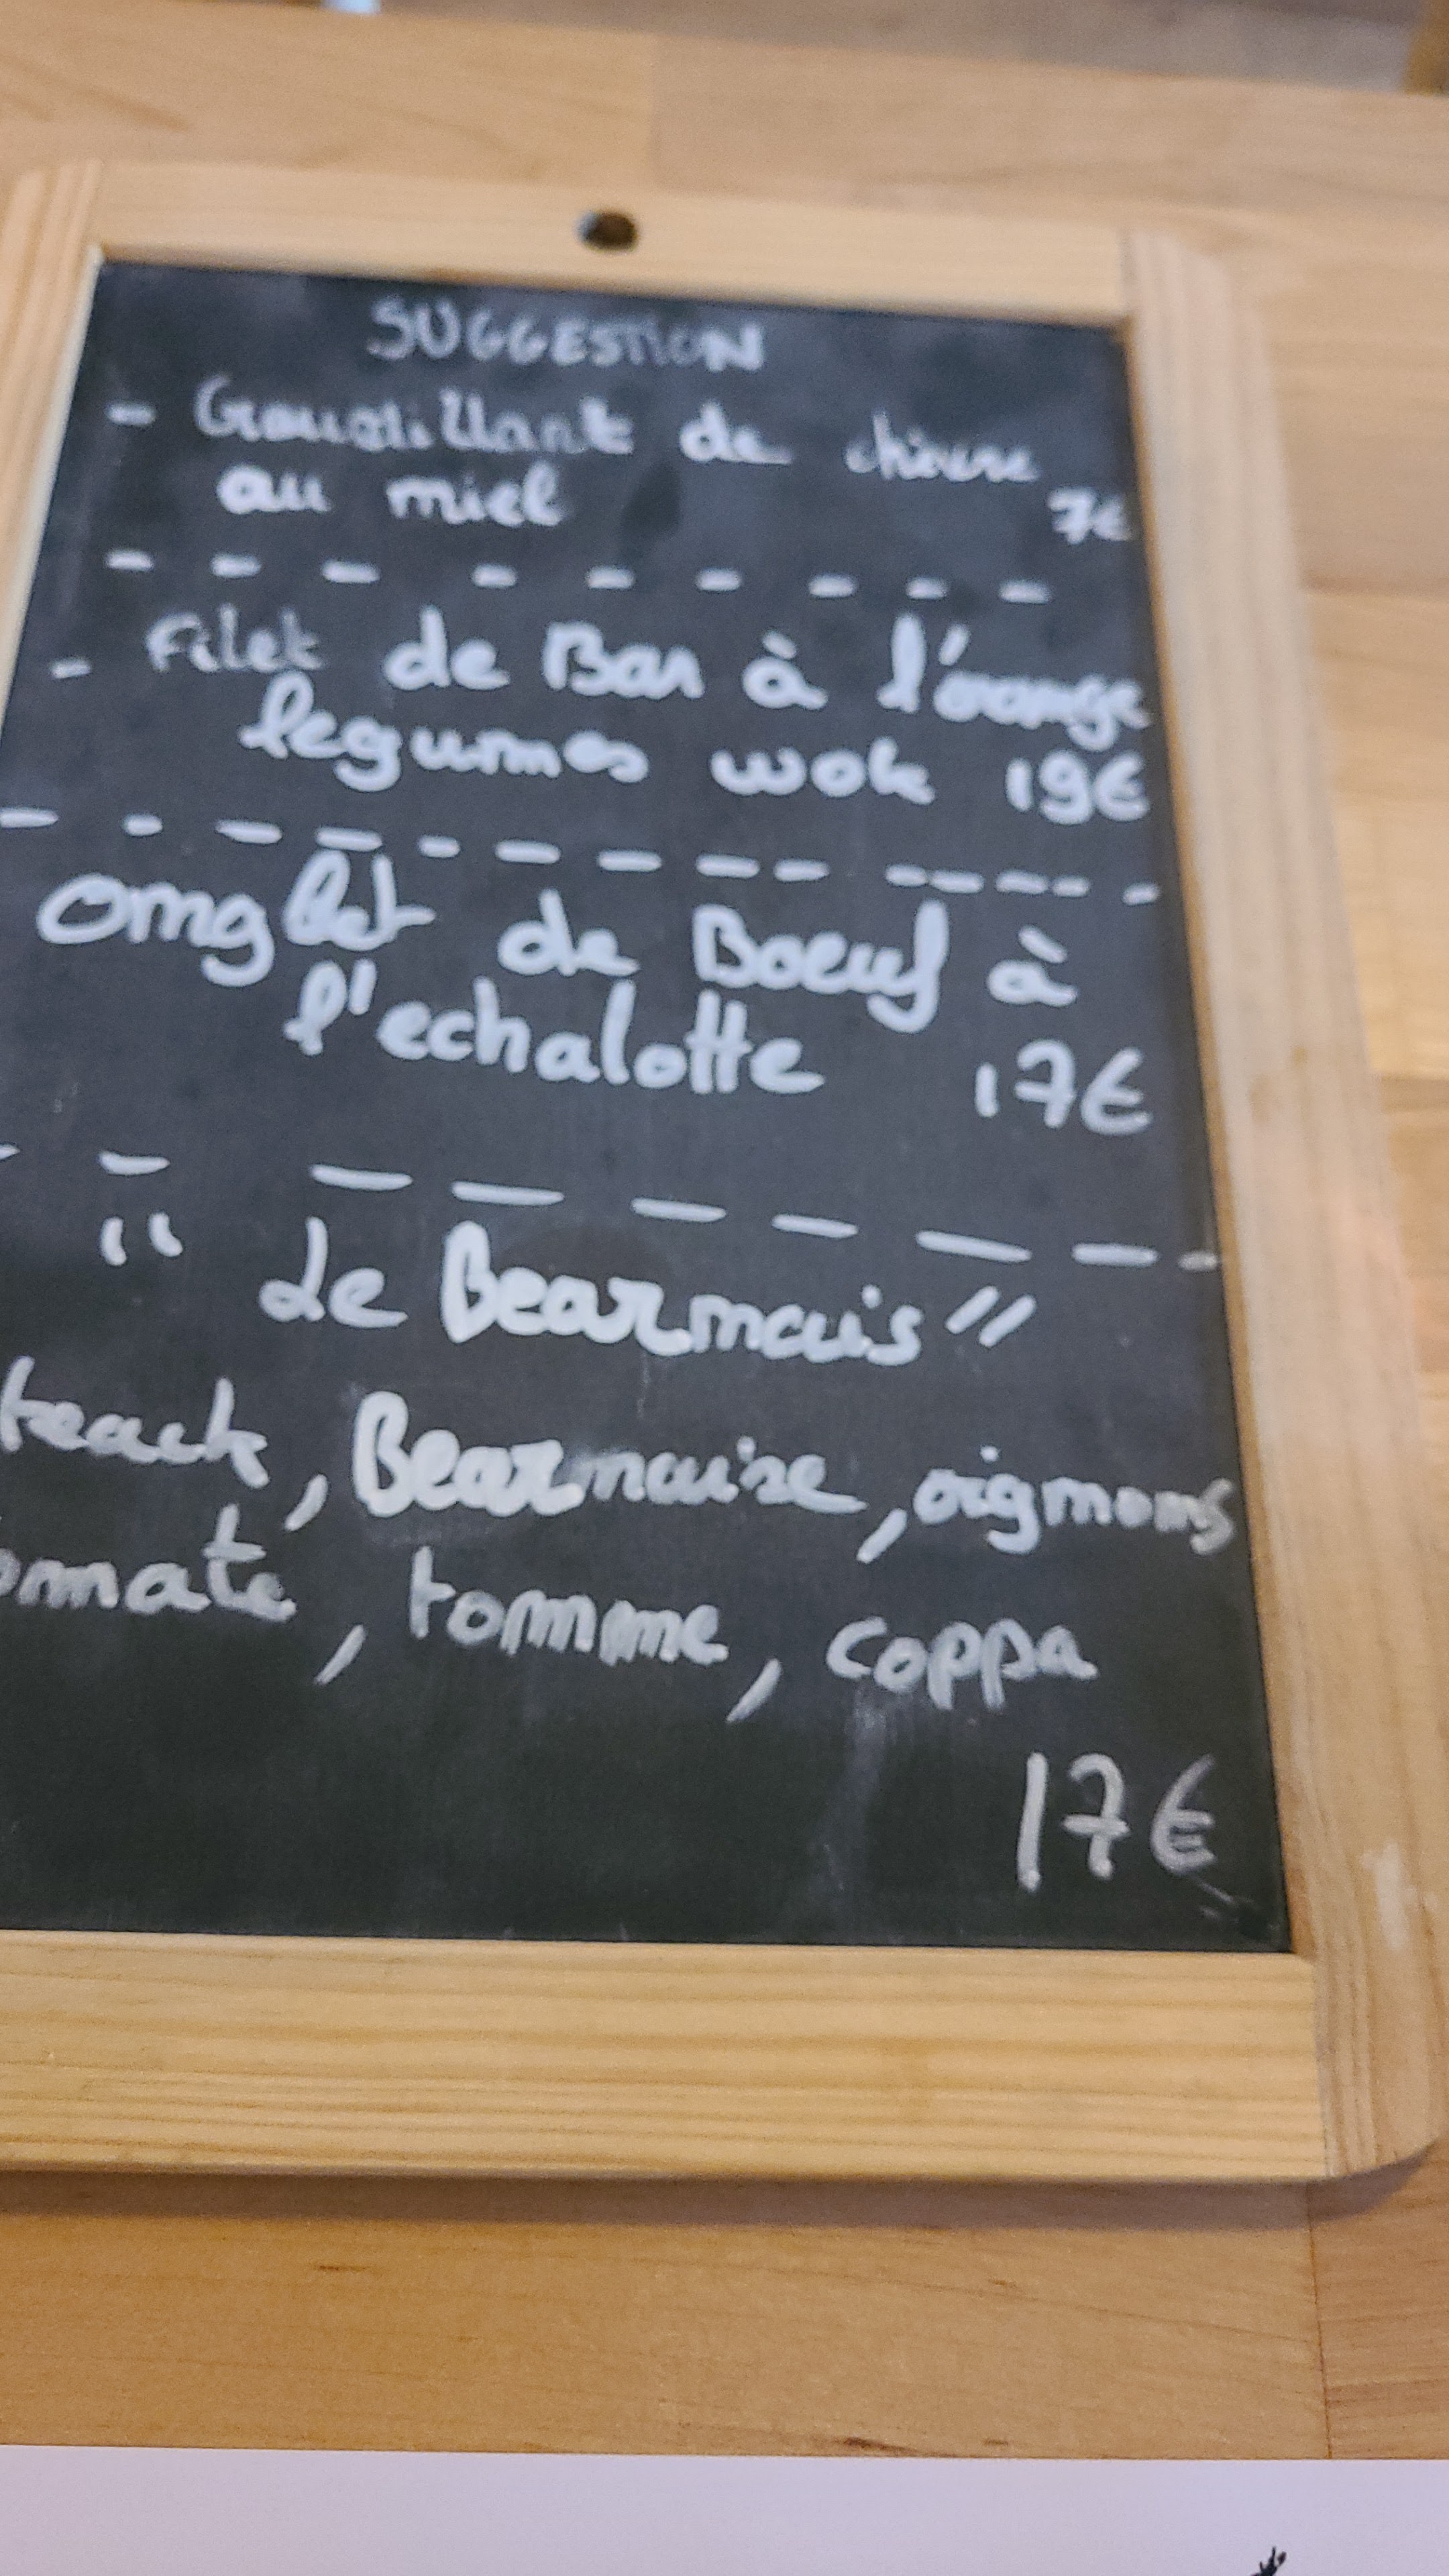 SUGGESTION
- Croustillant de chèvre
au miel 7€
- Filet de Bar à l'orange
legumes wok 19€
onglet de Boeuf à
l'echalotte 17€
"Le Bearnais"
teack, Bearnaise, oignons
omate, tomme, coppa
17€